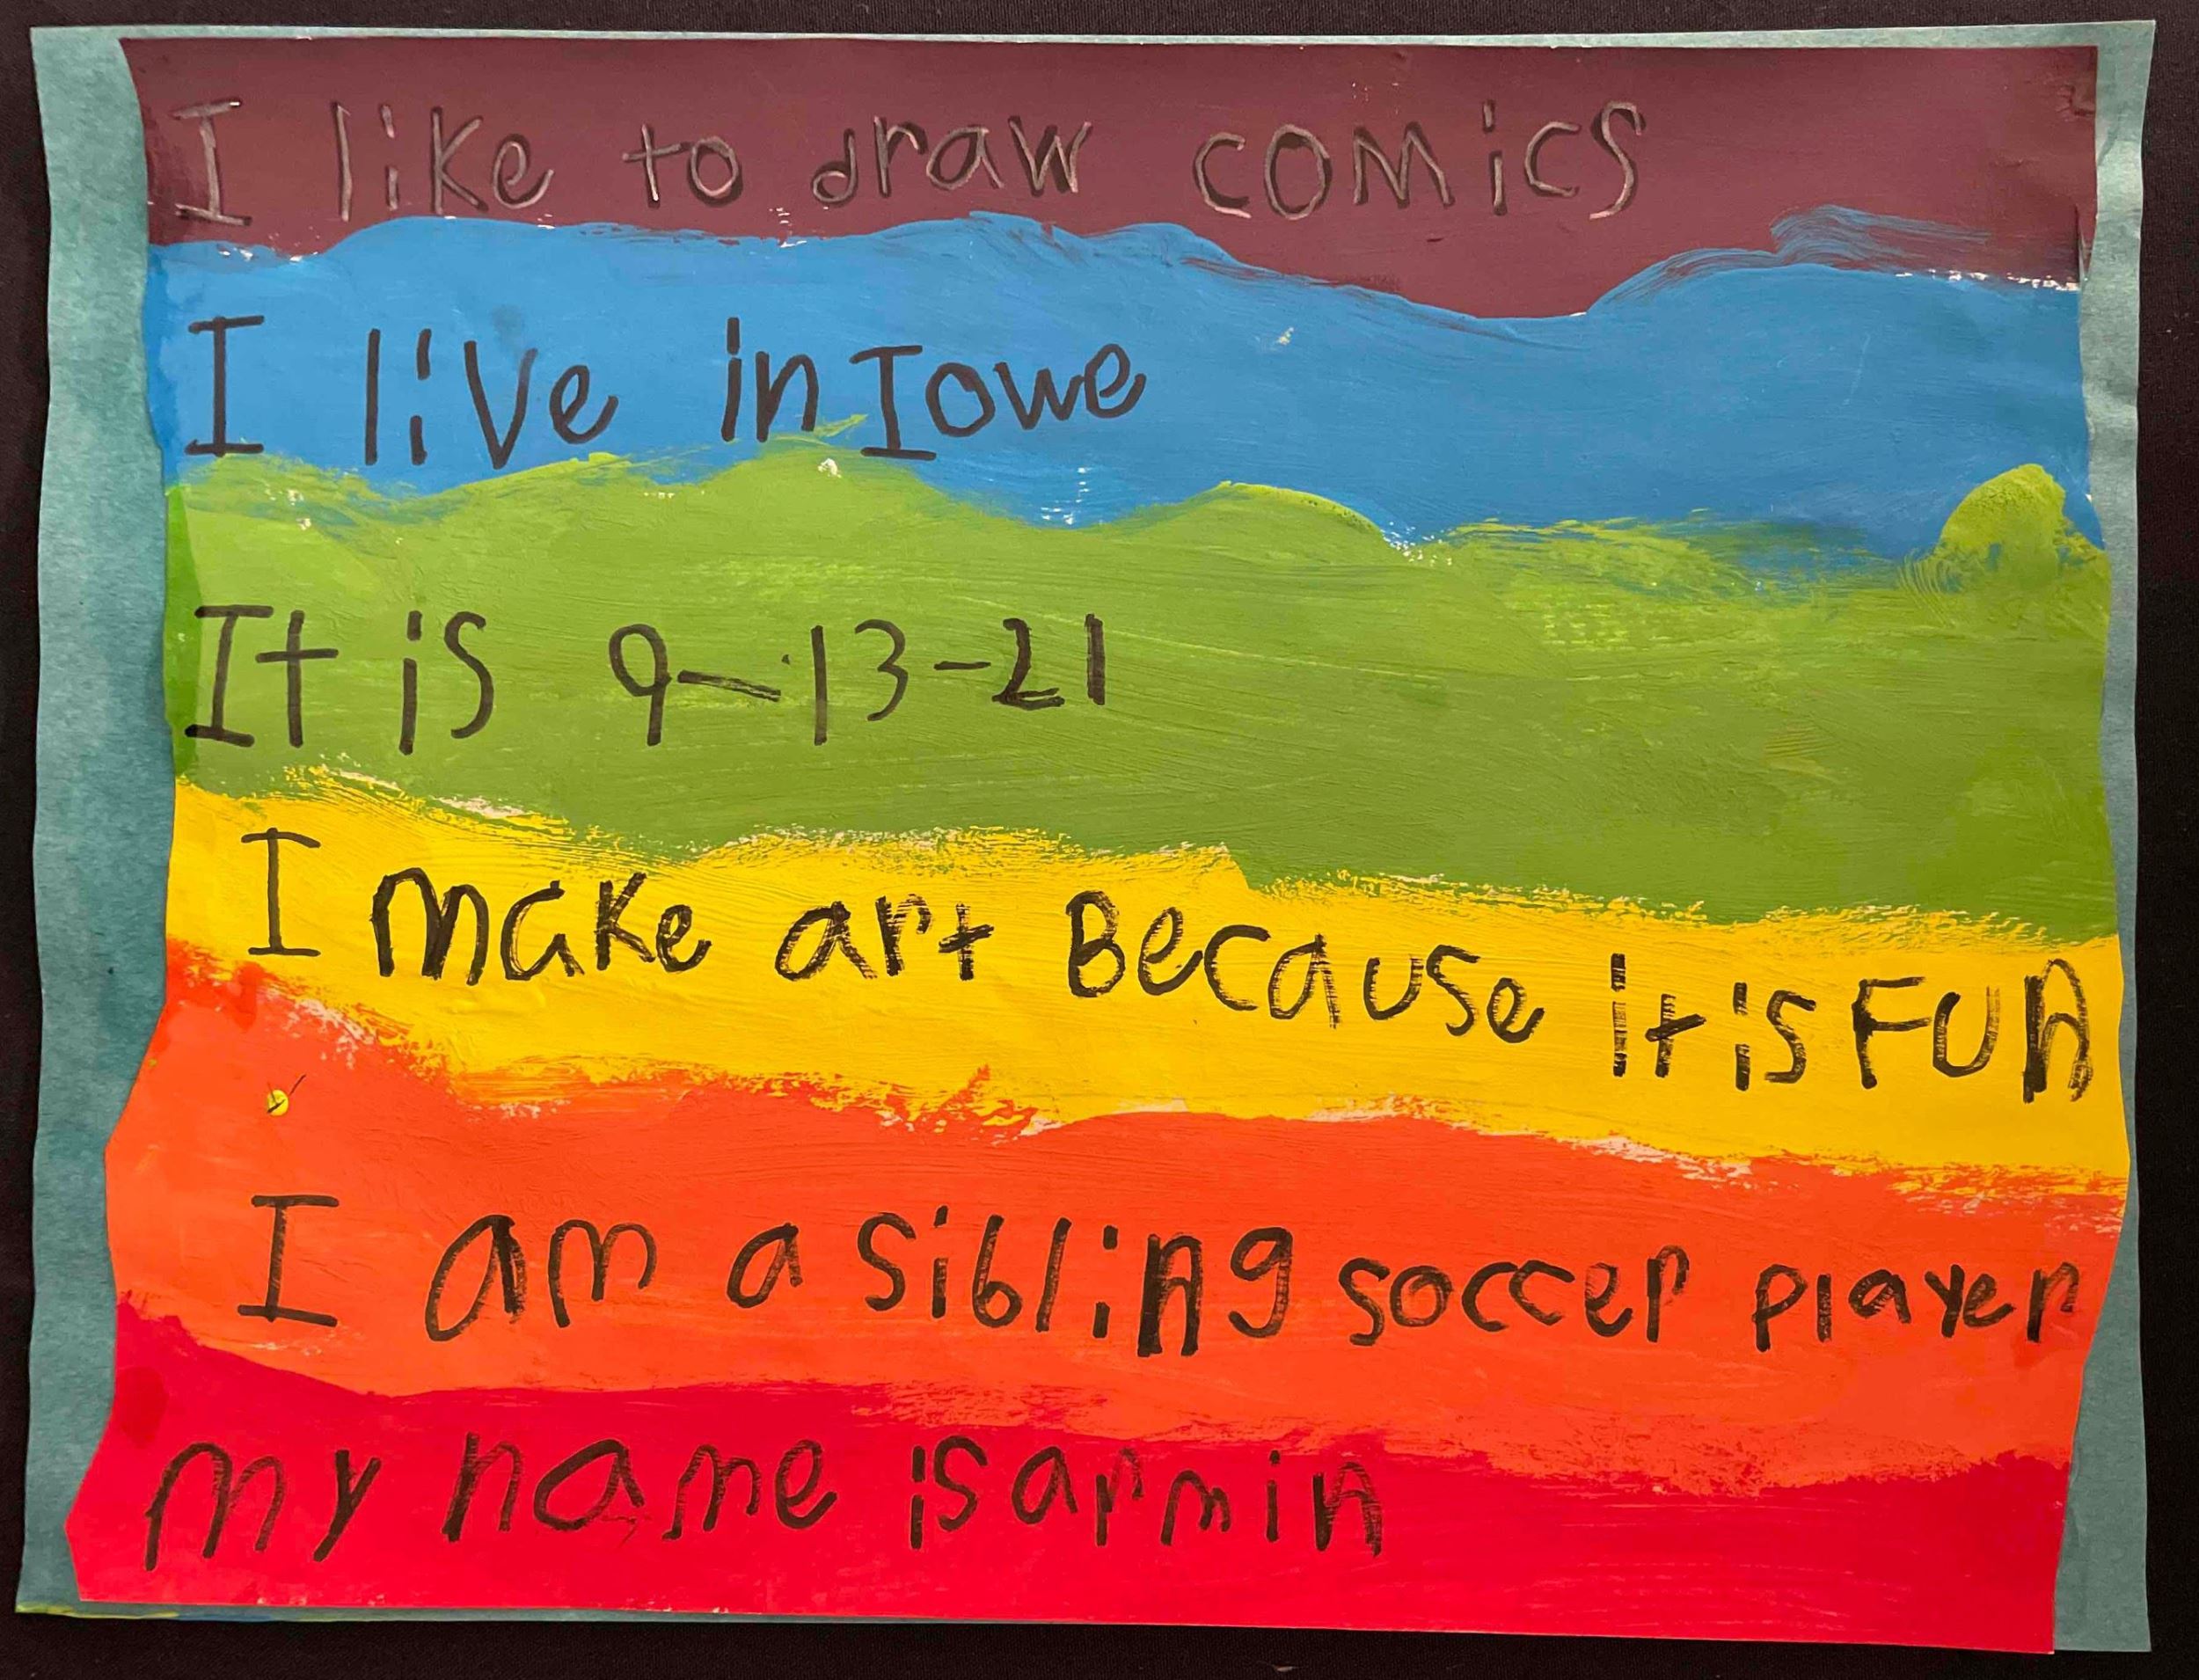 I like to draw comics
I live in Iowe
It is 9-13-21
I make art Because it is FUn
I am a sibling soccer player
my name is armin